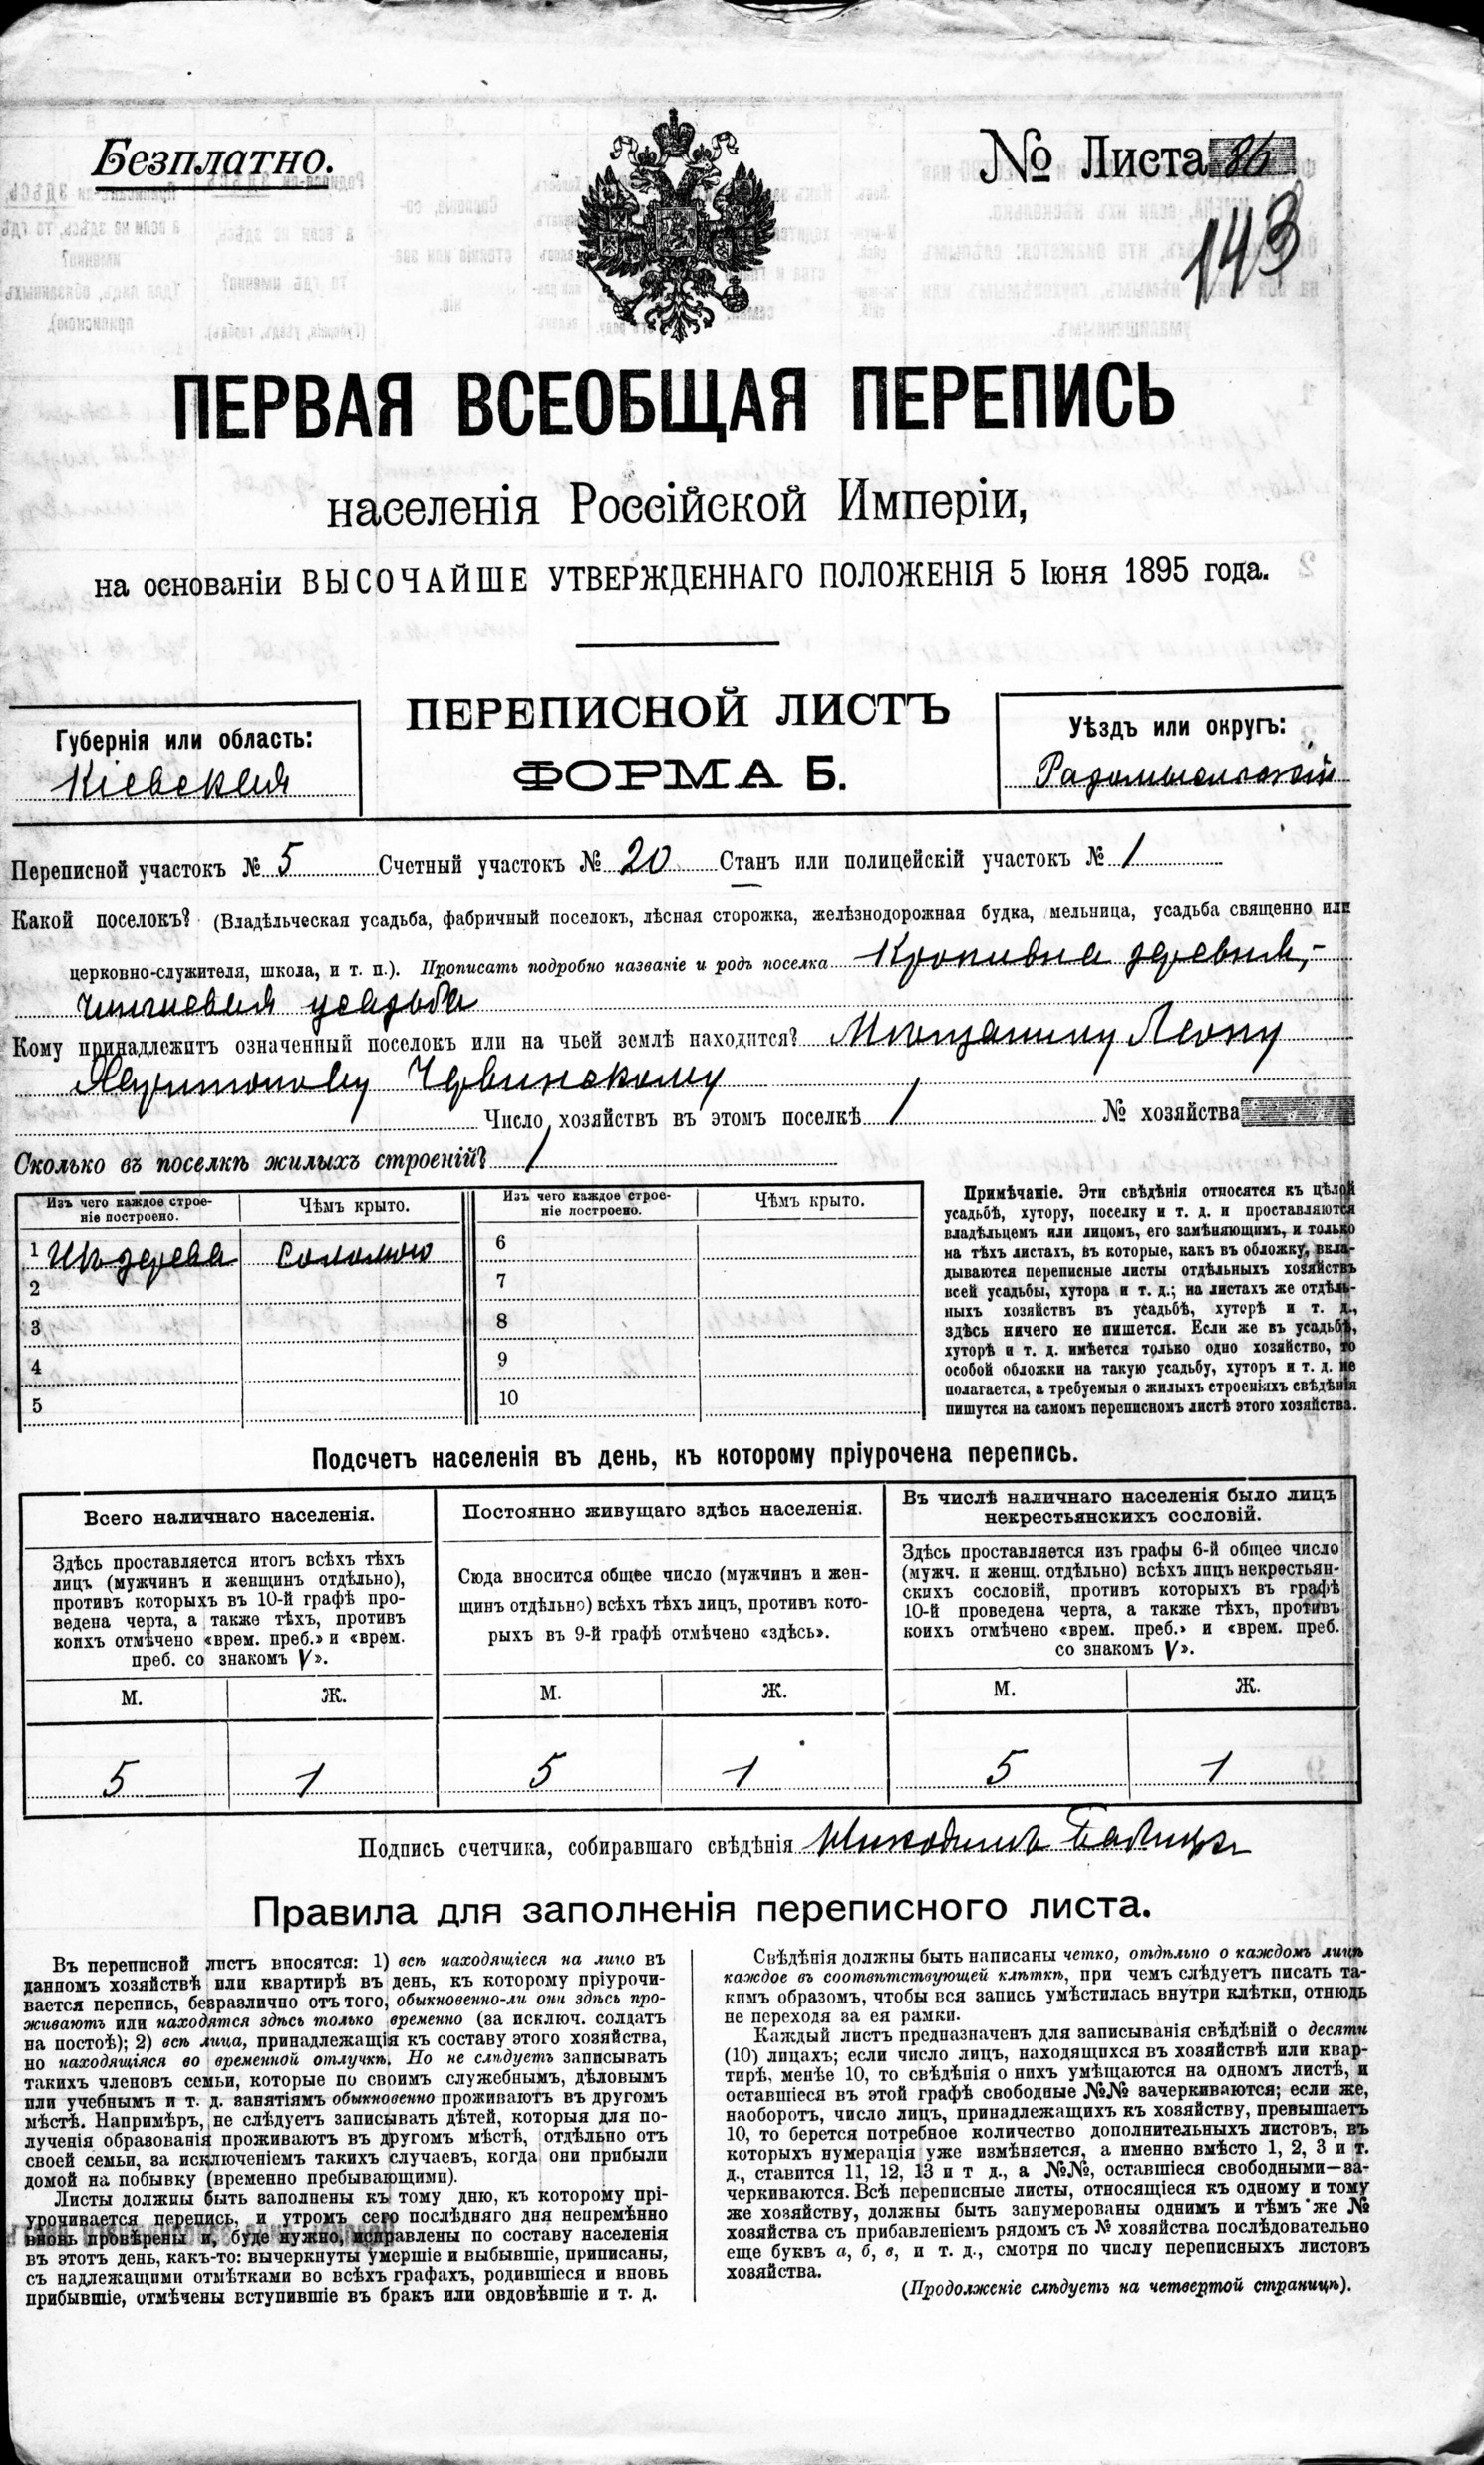 Безплатно.
№ Листа 86
143
ПЕРВАЯ ВСЕОБЩАЯ ПЕРЕПИСЬ
населенія Россійской Имперіи,
на основаніи ВЫСОЧАЙШЕ УТВЕРЖДЕННАГО ПОЛОЖЕНІЯ 5 Іюня 1895 года.
ПЕРЕПИСНОЙ ЛИСТЪ
ФОРМА Б.
Губернія или область:
Кіевская
Уѣздъ или округъ:
Радомысльскій
Переписной участокъ № 5 Счетный участокъ № 20 Станъ или полицейскій участокъ № 1
Какой поселокъ? (Владѣльческая усадьба, фабричный поселокъ, лѣсная сторожка, желѣзнодорожная будка, мельница, усадьба священно или
церковно-служителя, школа, и т. п.). Прописать подробно названіе и родъ поселка Кропивна деревня,-
чиншевая усадьба
Кому принадлежитъ означенный поселокъ или на чьей землѣ находится? Мѣщанину Леону
Червинскому
Число хозяйствъ въ этомъ поселкѣ 1 № хозяйства
Сколько въ поселкѣ жилыхъ строеній? 1
Изъ чего каждое строе-
ніе построено.
Чѣмъ крыто.
Изъ чего каждое строе-
ніе построено.
Чѣмъ крыто.
1 Изъ дерева соломою
2
3
4
5
6
7
8
9
10
Примѣчаніе. Эти свѣдѣнія относятся къ цѣлой
усадьбѣ, хутору, поселку и т. д. и проставляются
владѣльцемъ или лицомъ, его замѣняющимъ, и только
на тѣхъ листахъ, въ которые, какъ въ обложку, вкла-
дываются переписные листы отдѣльныхъ хозяйствъ
всей усадьбы, хутора и т. д.; на листахъ же отдѣль-
ныхъ хозяйствъ въ усадьбѣ, хуторѣ и т. д.,
здѣсь ничего не пишется. Если же въ усадьбѣ,
хуторѣ и т. д. имѣется только одно хозяйство, то
особой обложки на такую усадьбу, хуторъ и т. д. не
полагается, а требуемыя о жилыхъ строеніяхъ свѣдѣнія
пишутся на самомъ переписномъ листѣ этого хозяйства.
Подсчетъ населенія въ день, къ которому пріурочена перепись.
Всего наличнаго населенія.
Здѣсь проставляется итогъ всѣхъ тѣхъ
лицъ (мужчинъ и женщинъ отдѣльно),
противъ которыхъ въ 10-й графѣ про-
ведена черта, а также тѣхъ, противъ
коихъ отмѣчено «врем. преб.» и «врем.
преб. со знакомъ V».
М. Ж.
5 1
Постоянно живущаго здѣсь населенія.
Сюда вносится общее число (мужчинъ и жен-
щинъ отдѣльно) всѣхъ тѣхъ лицъ, противъ кото-
рыхъ въ 9-й графѣ отмѣчено «здѣсь».
М. Ж.
5 1
Въ числѣ наличнаго населенія было лицъ
некрестьянскихъ сословій.
Здѣсь проставляется изъ графы 6-й общее число
(мужч. и женщ. отдѣльно) всѣхъ лицъ некрестьян-
скихъ сословій, противъ которыхъ въ графѣ
10-й проведена черта, а также тѣхъ, противъ
коихъ отмѣчено «врем. преб.» и «врем. преб.
со знакомъ V».
М. Ж.
5 1
Подпись счетчика, собиравшаго свѣдѣнія Никодимъ
Правила для заполненія переписного листа.
Въ переписной листъ вносятся: 1) всѣ находящіеся на лицо въ
данномъ хозяйствѣ или квартирѣ въ день, къ которому пріурочи-
вается перепись, безразлично отъ того, обыкновенно-ли они здѣсь про-
живаютъ или находятся здѣсь только временно (за исключ. солдатъ
на постоѣ); 2) всѣ лица, принадлежащія къ составу этого хозяйства,
но находящіяся во временной отлучкѣ. Но не слѣдуетъ записывать
такихъ членовъ семьи, которые по своимъ служебнымъ, дѣловымъ
или учебнымъ и т. д. занятіямъ обыкновенно проживаютъ въ другомъ
мѣстѣ. Напримѣръ, не слѣдуетъ записывать дѣтей, которыя для по-
лученія образованія проживаютъ въ другомъ мѣстѣ, отдѣльно отъ
своей семьи, за исключеніемъ такихъ случаевъ, когда они прибыли
домой на побывку (временно пребывающими).
Листы должны быть заполнены къ тому дню, къ которому прі-
урочивается перепись, и утромъ сего послѣдняго дня непремѣнно
вновь провѣрены и, буде нужно, исправлены по составу населенія
въ этотъ день, какъ-то: вычеркнуты умершіе и выбывшіе, приписаны,
съ надлежащими отмѣтками во всѣхъ графахъ, родившіеся и вновь
прибывшіе, отмѣчены вступившіе въ бракъ или овдовѣвшіе и т. д.
Свѣдѣнія должны быть написаны четко, отдѣльно о каждомъ лицѣ
каждое въ соотвѣтствующей клѣткѣ, при чемъ слѣдуетъ писать та-
кимъ образомъ, чтобы вся запись умѣстилась внутри клѣтки, отнюдь
не переходя за ея рамки.
Каждый листъ предназначенъ для записыванія свѣдѣній о десяти
(10) лицахъ; если число лицъ, находящихся въ хозяйствѣ или квар-
тирѣ, менѣе 10, то свѣдѣнія о нихъ умѣщаются на одномъ листѣ, и
оставшіеся въ этой графѣ свободные №№ зачеркиваются; если же,
наоборотъ, число лицъ, принадлежащихъ къ хозяйству, превышаетъ
10, то берется потребное количество дополнительныхъ листовъ, въ
которыхъ нумерація уже измѣняется, а именно вмѣсто 1, 2, 3 и т.
д., ставится 11, 12, 13 и т д., а №№, оставшіеся свободными—за-
черкиваются. Всѣ переписные листы, относящіеся къ одному и тому
же хозяйству, должны быть занумерованы однимъ и тѣмъ же №
хозяйства съ прибавленіемъ рядомъ съ № хозяйства послѣдовательно
еще буквъ а, б, в, и т. д., смотря по числу переписныхъ листовъ
хозяйства.
(Продолженіе слѣдуетъ на четвертой страницѣ).